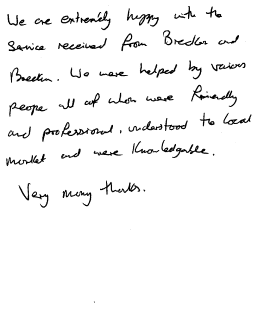 We are extremely happy with the
service received from Breckon and
Breckon. We were helped by various
people all of whom were friendly
and professional, understood the local
market and were knowledgable.
Very many thanks.